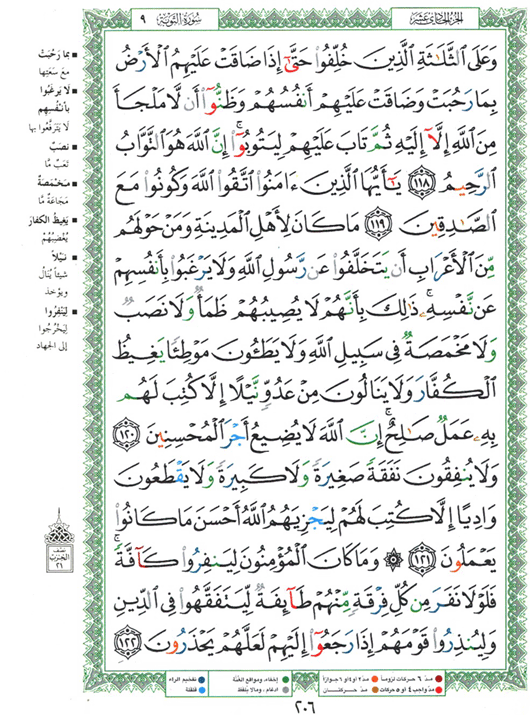 الجزء الحادي عشر
سورة التوبة
٩
وَعَلَى الثَّلَاثَةِ الَّذِينَ خُلِّفُوا حَتَّىٰ إِذَا ضَاقَتْ عَلَيْهِمُ الْأَرْضُ
بِمَا رَحُبَتْ وَضَاقَتْ عَلَيْهِمْ أَنفُسُهُمْ وَظَنُّوا أَن لَّا مَلْجَأَ
مِنَ اللَّهِ إِلَّا إِلَيْهِ ثُمَّ تَابَ عَلَيْهِمْ لِيَتُوبُوا ۚ إِنَّ اللَّهَ هُوَ التَّوَّابُ
الرَّحِيمُ ١١٨ يَا أَيُّهَا الَّذِينَ ءَامَنُوا اتَّقُوا اللَّهَ وَكُونُوا مَعَ
الصَّادِقِينَ ١١٩ مَا كَانَ لِأَهْلِ الْمَدِينَةِ وَمَنْ حَوْلَهُم
مِّنَ الْأَعْرَابِ أَن يَتَخَلَّفُوا عَن رَّسُولِ اللَّهِ وَلَا يَرْغَبُوا بِأَنفُسِهِمْ
عَن نَّفْسِهِ ۚ ذَٰلِكَ بِأَنَّهُمْ لَا يُصِيبُهُمْ ظَمَأٌ وَلَا نَصَبٌ
وَلَا مَخْمَصَةٌ فِي سَبِيلِ اللَّهِ وَلَا يَطَئُونَ مَوْطِئًا يَغِيظُ
الْكُفَّارَ وَلَا يَنَالُونَ مِنْ عَدُوٍّ نَّيْلًا إِلَّا كُتِبَ لَهُم
بِهِ عَمَلٌ صَالِحٌ ۚ إِنَّ اللَّهَ لَا يُضِيعُ أَجْرَ الْمُحْسِنِينَ ١٢٠
وَلَا يُنفِقُونَ نَفَقَةً صَغِيرَةً وَلَا كَبِيرَةً وَلَا يَقْطَعُونَ
وَادِيًا إِلَّا كُتِبَ لَهُمْ لِيَجْزِيَهُمُ اللَّهُ أَحْسَنَ مَا كَانُوا
يَعْمَلُونَ ١٢١ ۞ وَمَا كَانَ الْمُؤْمِنُونَ لِيَنفِرُوا كَافَّةً ۚ
فَلَوْلَا نَفَرَ مِن كُلِّ فِرْقَةٍ مِّنْهُمْ طَائِفَةٌ لِّيَتَفَقَّهُوا فِي الدِّينِ
وَلِيُنذِرُوا قَوْمَهُمْ إِذَا رَجَعُوا إِلَيْهِمْ لَعَلَّهُمْ يَحْذَرُونَ ١٢٢
بما رَحُبَتْ
مع سَعَتِها
لا يَرغَبُوا بأنفُسِهِم
لا يَتَرَفَّعُوا بها
نَصَبٌ
تَعَبٌ مَّا
مَخْمَصَةٌ
مَجَاعَةٌ مَّا
يَغِيظُ الكُفارَ
يُغْضِبُهُمْ
نَيْلاً
شيئاً يُنَالُ
ويُؤخذ
لِيَنْفِرُوا
لِيَخْرُجوا
إلى الجهاد
نصف
الحزب
٢١
مدّ ٦ حركات لزوماً
مدّ ٢ او ٤ او ٦ جوازاً
مدّ واجب ٤ او ٥ حركات
مدّ حركتان
إخفاء، ومواقع الغُنَّة
ادغام، وما لا يُلفَظ
تفخيم الراء
قلقلة
٢٠٦